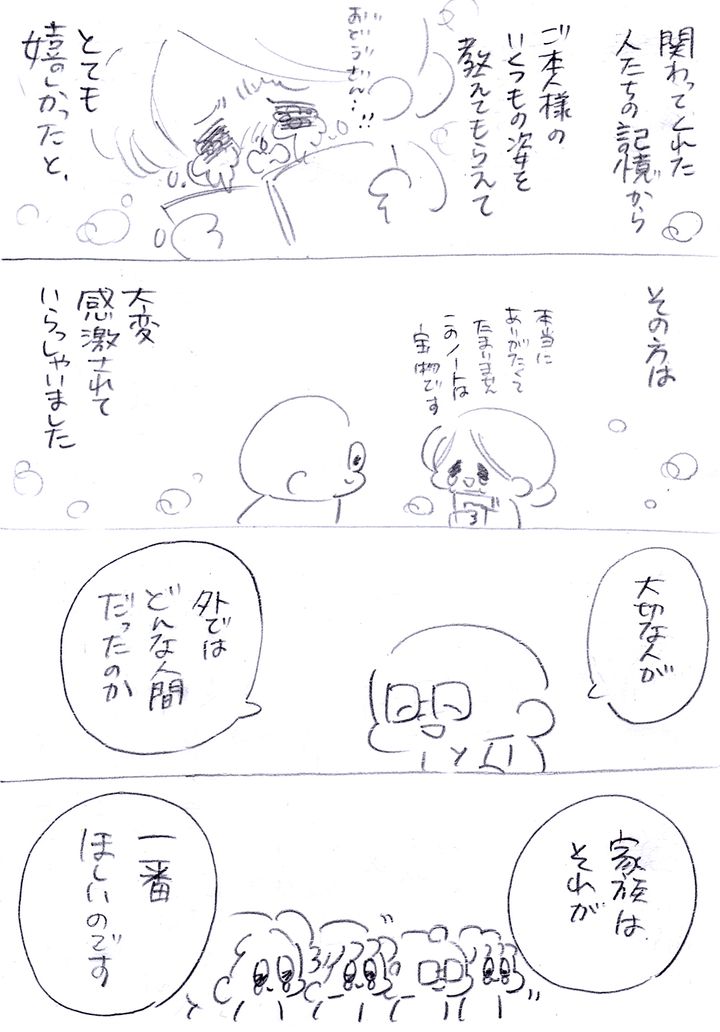 関わってくれた
人たちの記憶から
ご本人様の
いくつもの姿を
教えてもらえて
おどうざん…!!
とても
嬉しかったと、
その方は
本当に
ありがたくて
たまりません
このノートは
宝物です
大変
感激されて
いらっしゃいました
大切な人が
外では
どんな人間
だったのか
家族は
それが
一番
ほしいのです